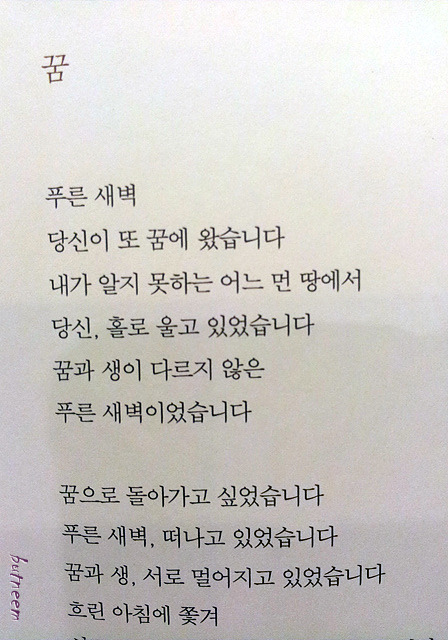 꿈
푸른 새벽
당신이 또 꿈에 왔습니다
내가 알지 못하는 어느 먼 땅에서
당신, 홀로 울고 있었습니다
꿈과 생이 다르지 않은
푸른 새벽이었습니다
꿈으로 돌아가고 싶었습니다
푸른 새벽, 떠나고 있었습니다
꿈과 생, 서로 멀어지고 있었습니다
흐린 아침에 쫓겨
butneem